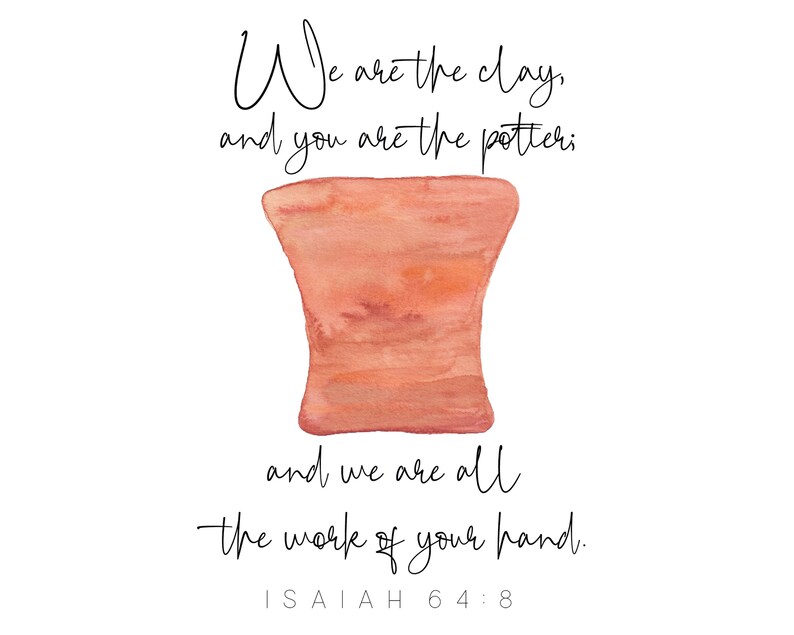 We are the clay,
and you are the potter;
and we are all
the work of your hand.
ISAIAH 64:8